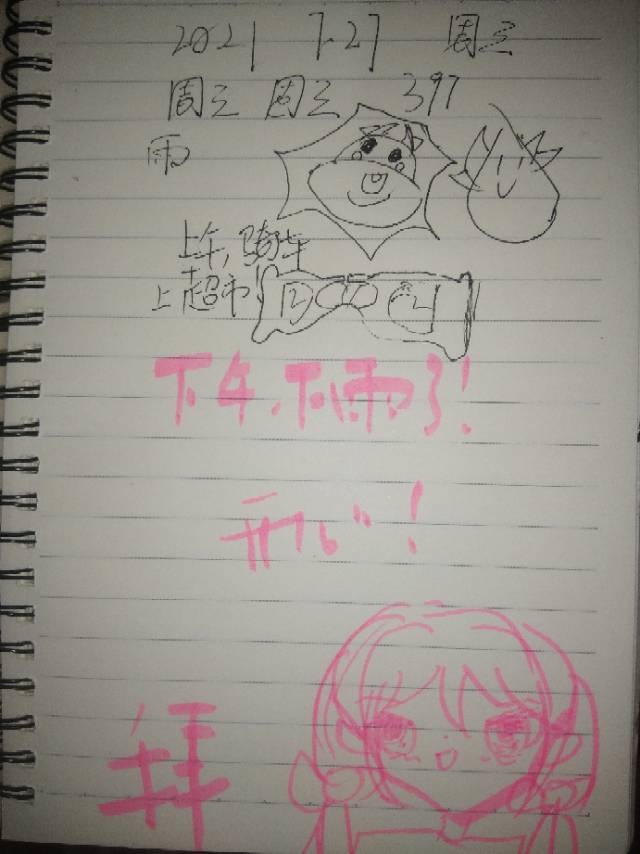 2021 7.27 周三
周三 周三 397
雨
上午，骑车
上超市
下午，下雨了！
开心！
拜